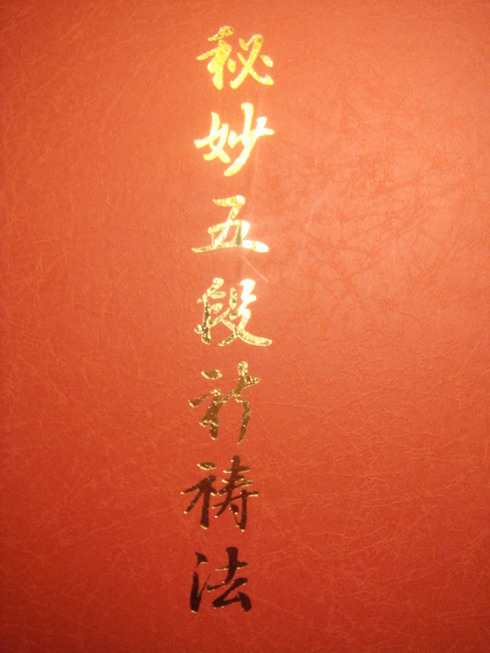 秘妙五段祈祷法